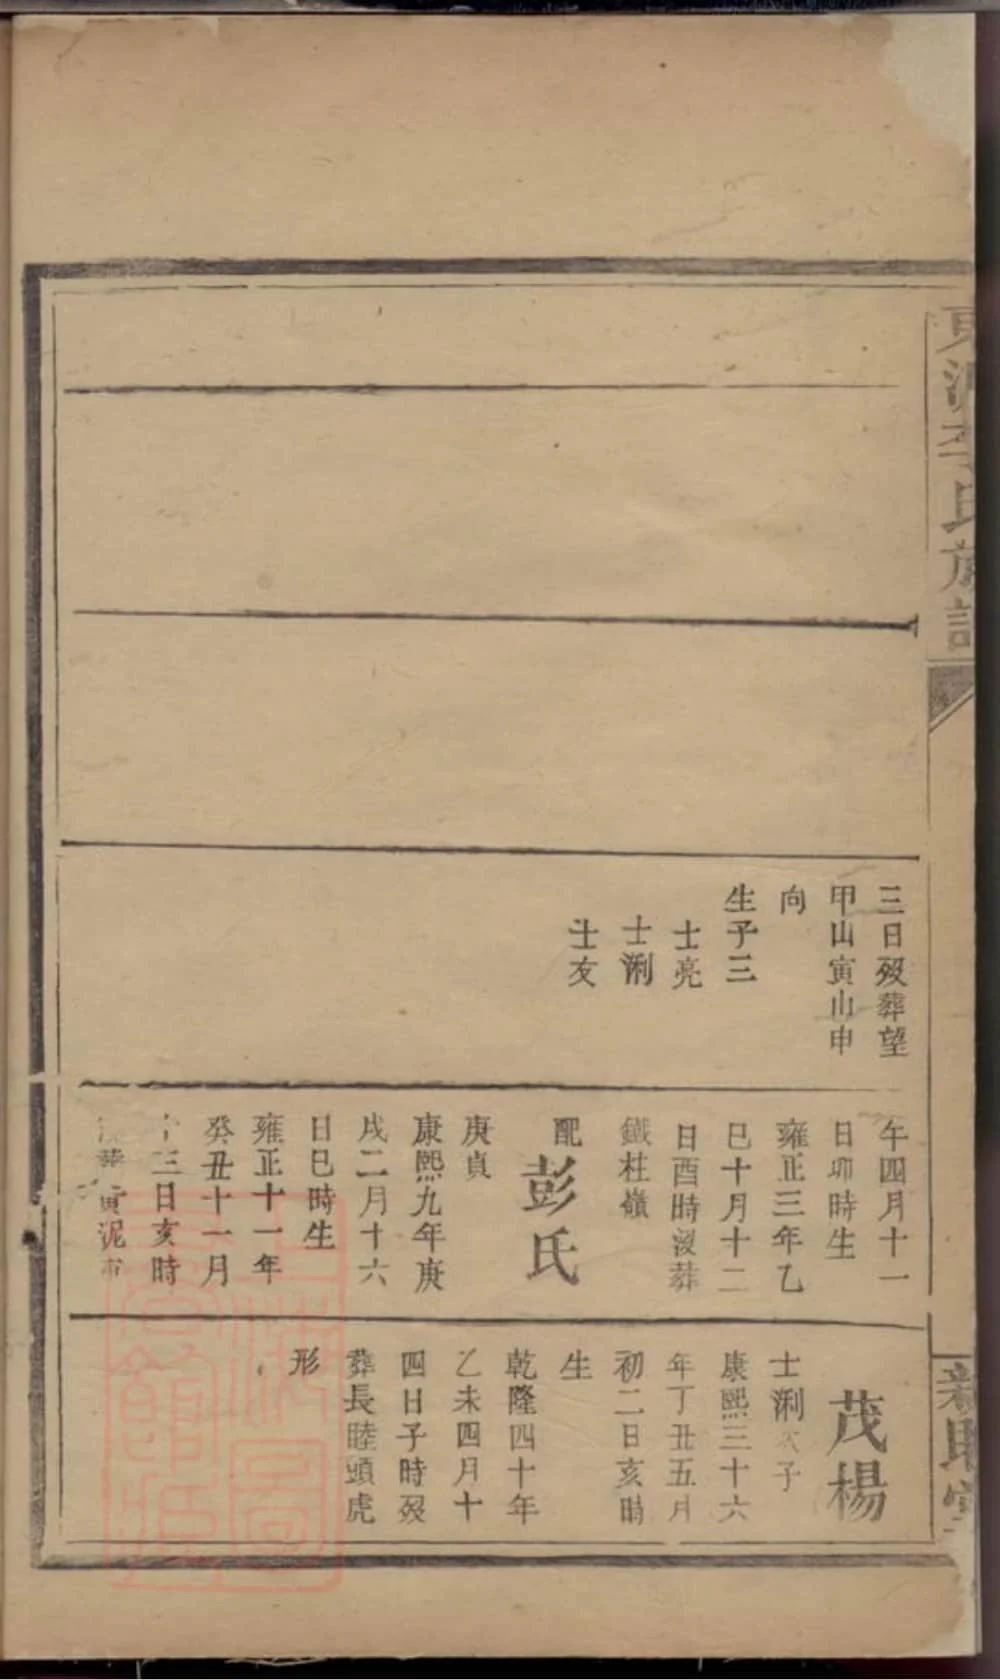 李氏族譜
三日殁葬望
甲山寅山申
向
生子三
士亮
士浰
士友
午四月十一
日卯時生
雍正三年乙
巳十月十二
日酉時没葬
鐵柱嶺
配彭氏
庚貞
康熙九年庚
戌二月十六
日巳時生
雍正十一年
癸丑十一月
三日亥時
葬寅泥
茂楊
士浰次子
康熙三十六
年丁丑五月
初二日亥時
生
乾隆四十年
乙未四月十
四日子時殁
葬長睦頭虎
形
上海圖書館藏